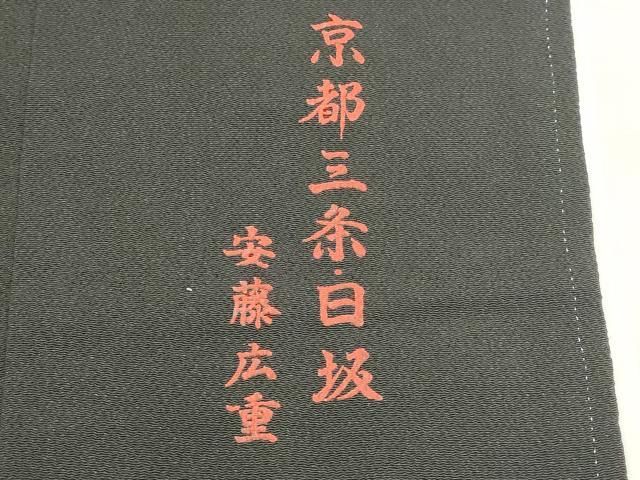 京都三条・日坂
安藤広重